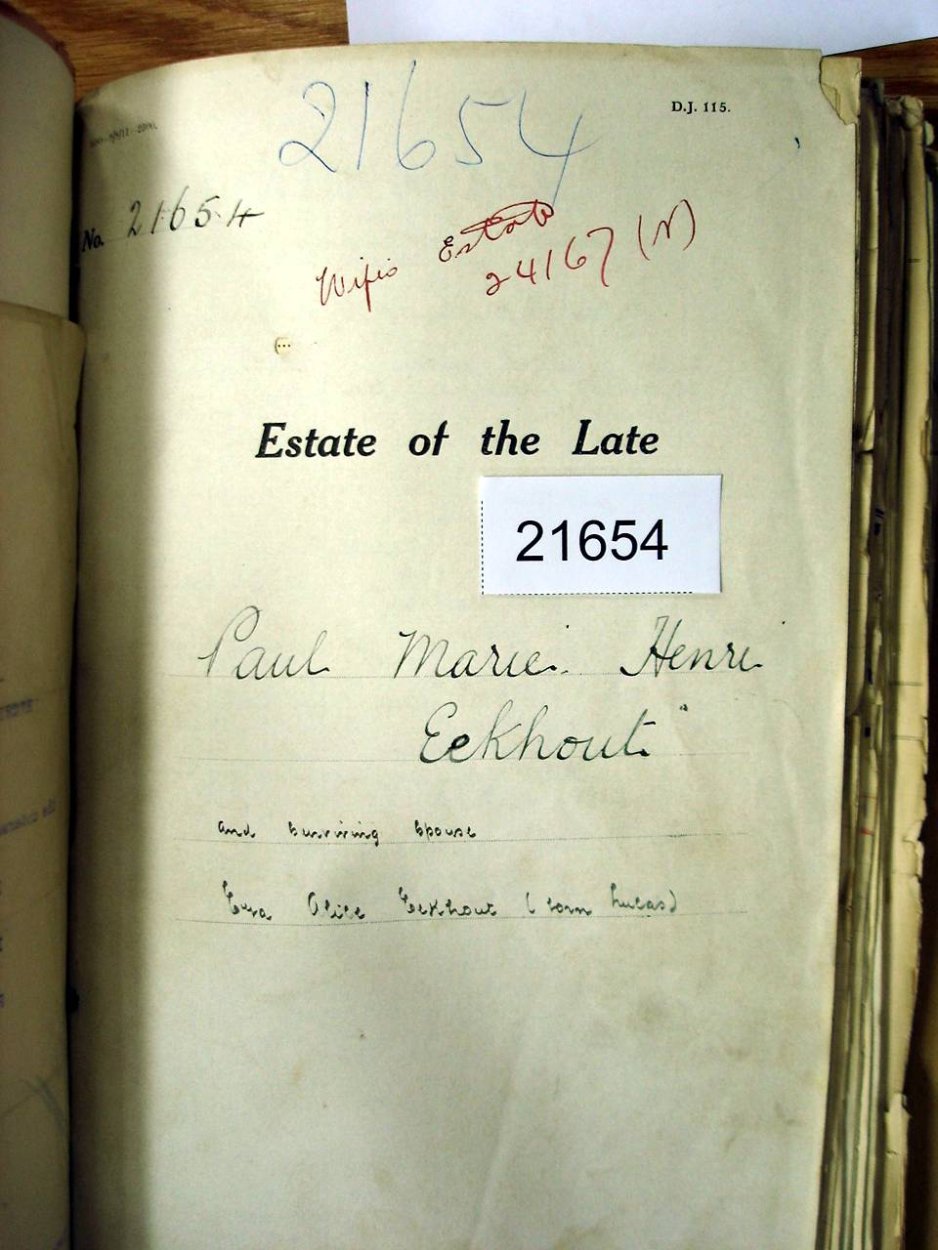 21654
D.J. 115.
No. 21654
Wife's Estate
24167 (N)
Estate of the Late
21654
Paul Marie Henri
Eekhout
and surviving spouse
Eva Alice Eekhout (born Lucas)